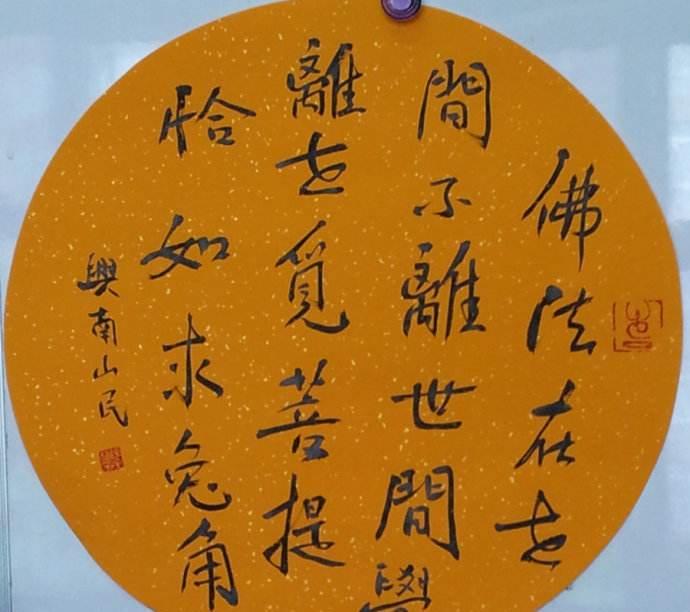 佛法在世
間不離世間
離世覓菩提
恰如求兔角
興南山民